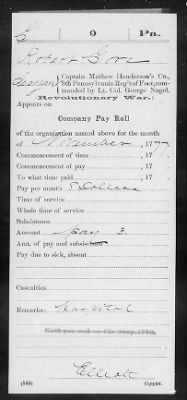 G 9 Pn.
Robert Gore
Sergeant, Captain Mathew Henderson's Co.,
9th Pennsylvania Reg't of Foot, commanded by Lt. Col. George Nagel.
(Revolutionary War.)
Appears on
Company Pay Roll
of the organization named above for the month
of November, 1777.
Commencement of time, 17
Commencement of pay, 17
To what time paid, 17
Pay per month 8 Dollars
Time of service
Whole time of service
Subsistence
Amount
Amt. of pay and subsistence
Pay due to sick, absent
Casualties
Remarks: Hospital
Elliott
Copyist.